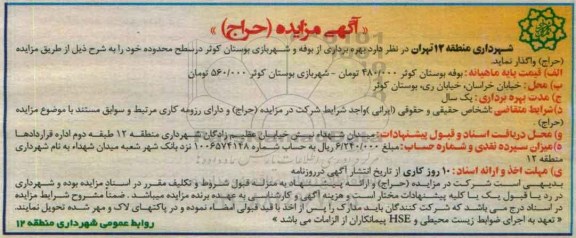 « آگهی مزایده (حراج) »
شهرداری منطقه ۱۲ تهران در نظر دارد بهره برداری از بوفه و شهربازی بوستان کوثر درسطح محدوده خود را به شرح ذیل از طریق مزایده
(حراج) واگذار نماید.
الف) قیمت پایه ماهیانه : بوفه بوستان کوثر ۴۸۰/۰۰۰ تومان - شهربازی بوستان کوثر ۵۶۰/۰۰۰ تومان
ب) محل : خیابان خراسان، خیابان ری، بوستان کوثر
ج) مدت بهره برداری : یک سال
د) شرایط متقاضی : اشخاص حقیقی و حقوقی (ایرانی) واجد شرایط شرکت در مزایده (حراج) و دارای رزومه کاری مرتبط و سوابق مستند با موضوع مزایده
(حراج)
و) محل دریافت اسناد و قبول پیشنهادات : میدان شهداء نبش خیابان عظیم زادگان شهرداری منطقه ۱۲ طبقه دوم اداره قراردادها
ه) میزان سپرده نقدی و شماره حساب : مبلغ ۶/۲۴۰/۰۰۰ ریال به حساب شماره ۱۰۰۶۵۷۴۱۲۸ نزد بانک شهر شعبه میدان شهداء به نام شهرداری
منطقه ۱۲
ی) مهلت اخذ و ارائه اسناد : ۱۰ روز کاری از تاریخ انتشار آگهی در روزنامه
بدیهی است شرکت در مزایده (حراج) و ارائه پیشنهاد به منزله قبول شروط و تکلیف مقرر در اسناد مزایده بوده و شهرداری
در رد یا قبول یک یا کلیه پیشنهادات مختار است و هزینه آگهی و کارشناسی به عهده برنده مزایده میباشد. ضمناً مشروح شرایط مزایده
در اسناد درج می باشد که شرکت کنندگان باید مدارک را پس از اخذ با قید قبولی امضاء نموده و در پاکتهای لاک و مهر شده تحویل نمایند.
« تعهد به اجرای ضوابط زیست محیطی و HSE پیمانکاران از الزامات می باشد »
روابط عمومی شهرداری منطقه ۱۲